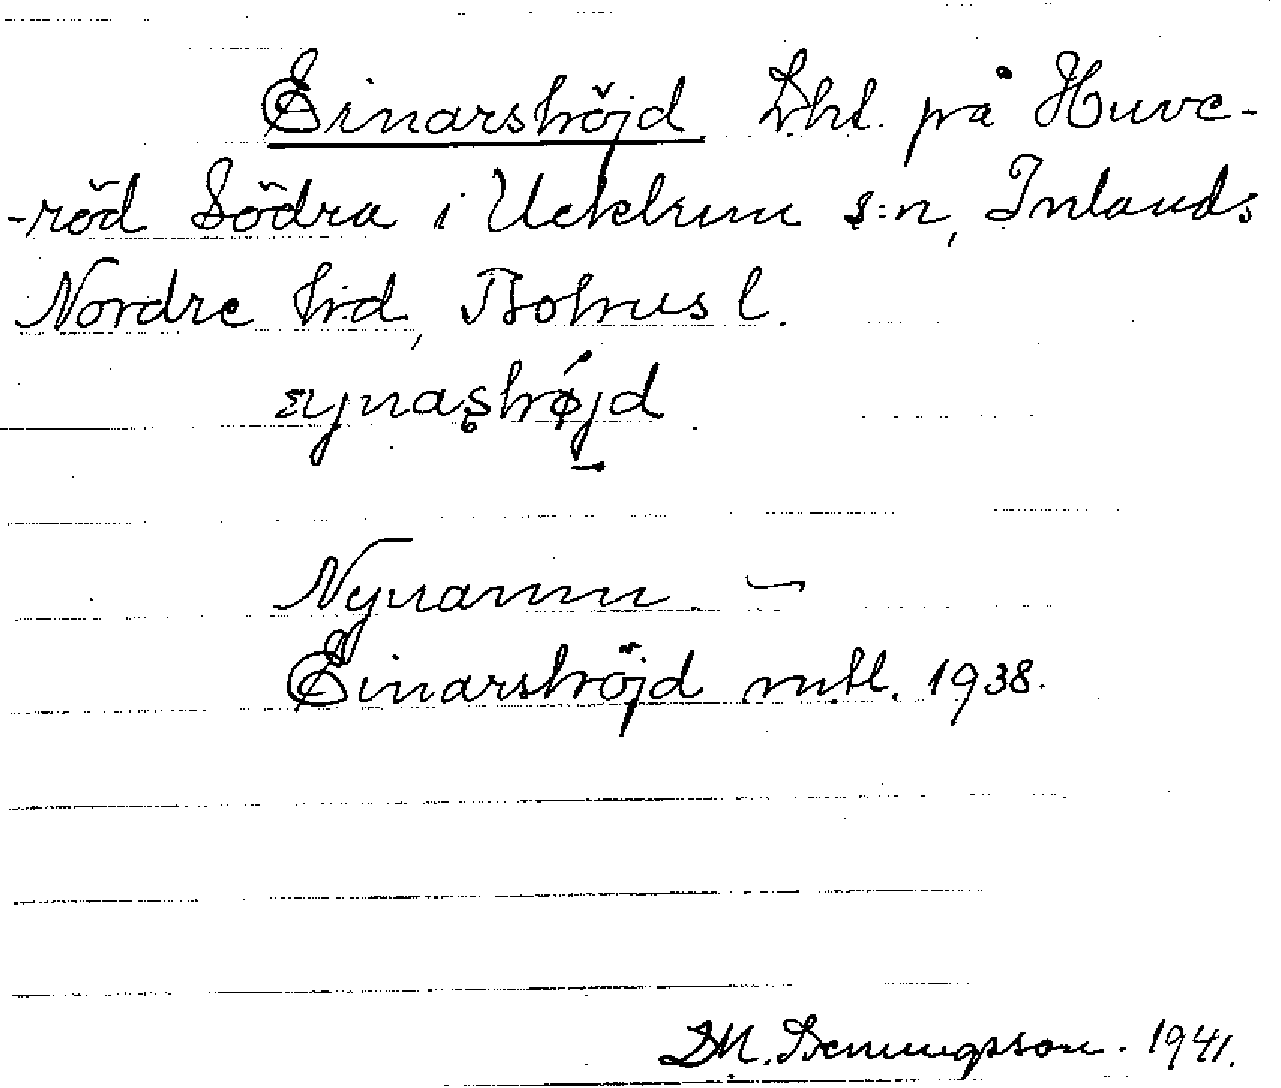 Einarshöjd Lht. på Huve-
-röd Södra i Ucklum s:n, Inlands
Nordre hrd, Bohusl.
Nynamn –
Einarshöjd mtl. 1938.
Bennngsson. 1941.